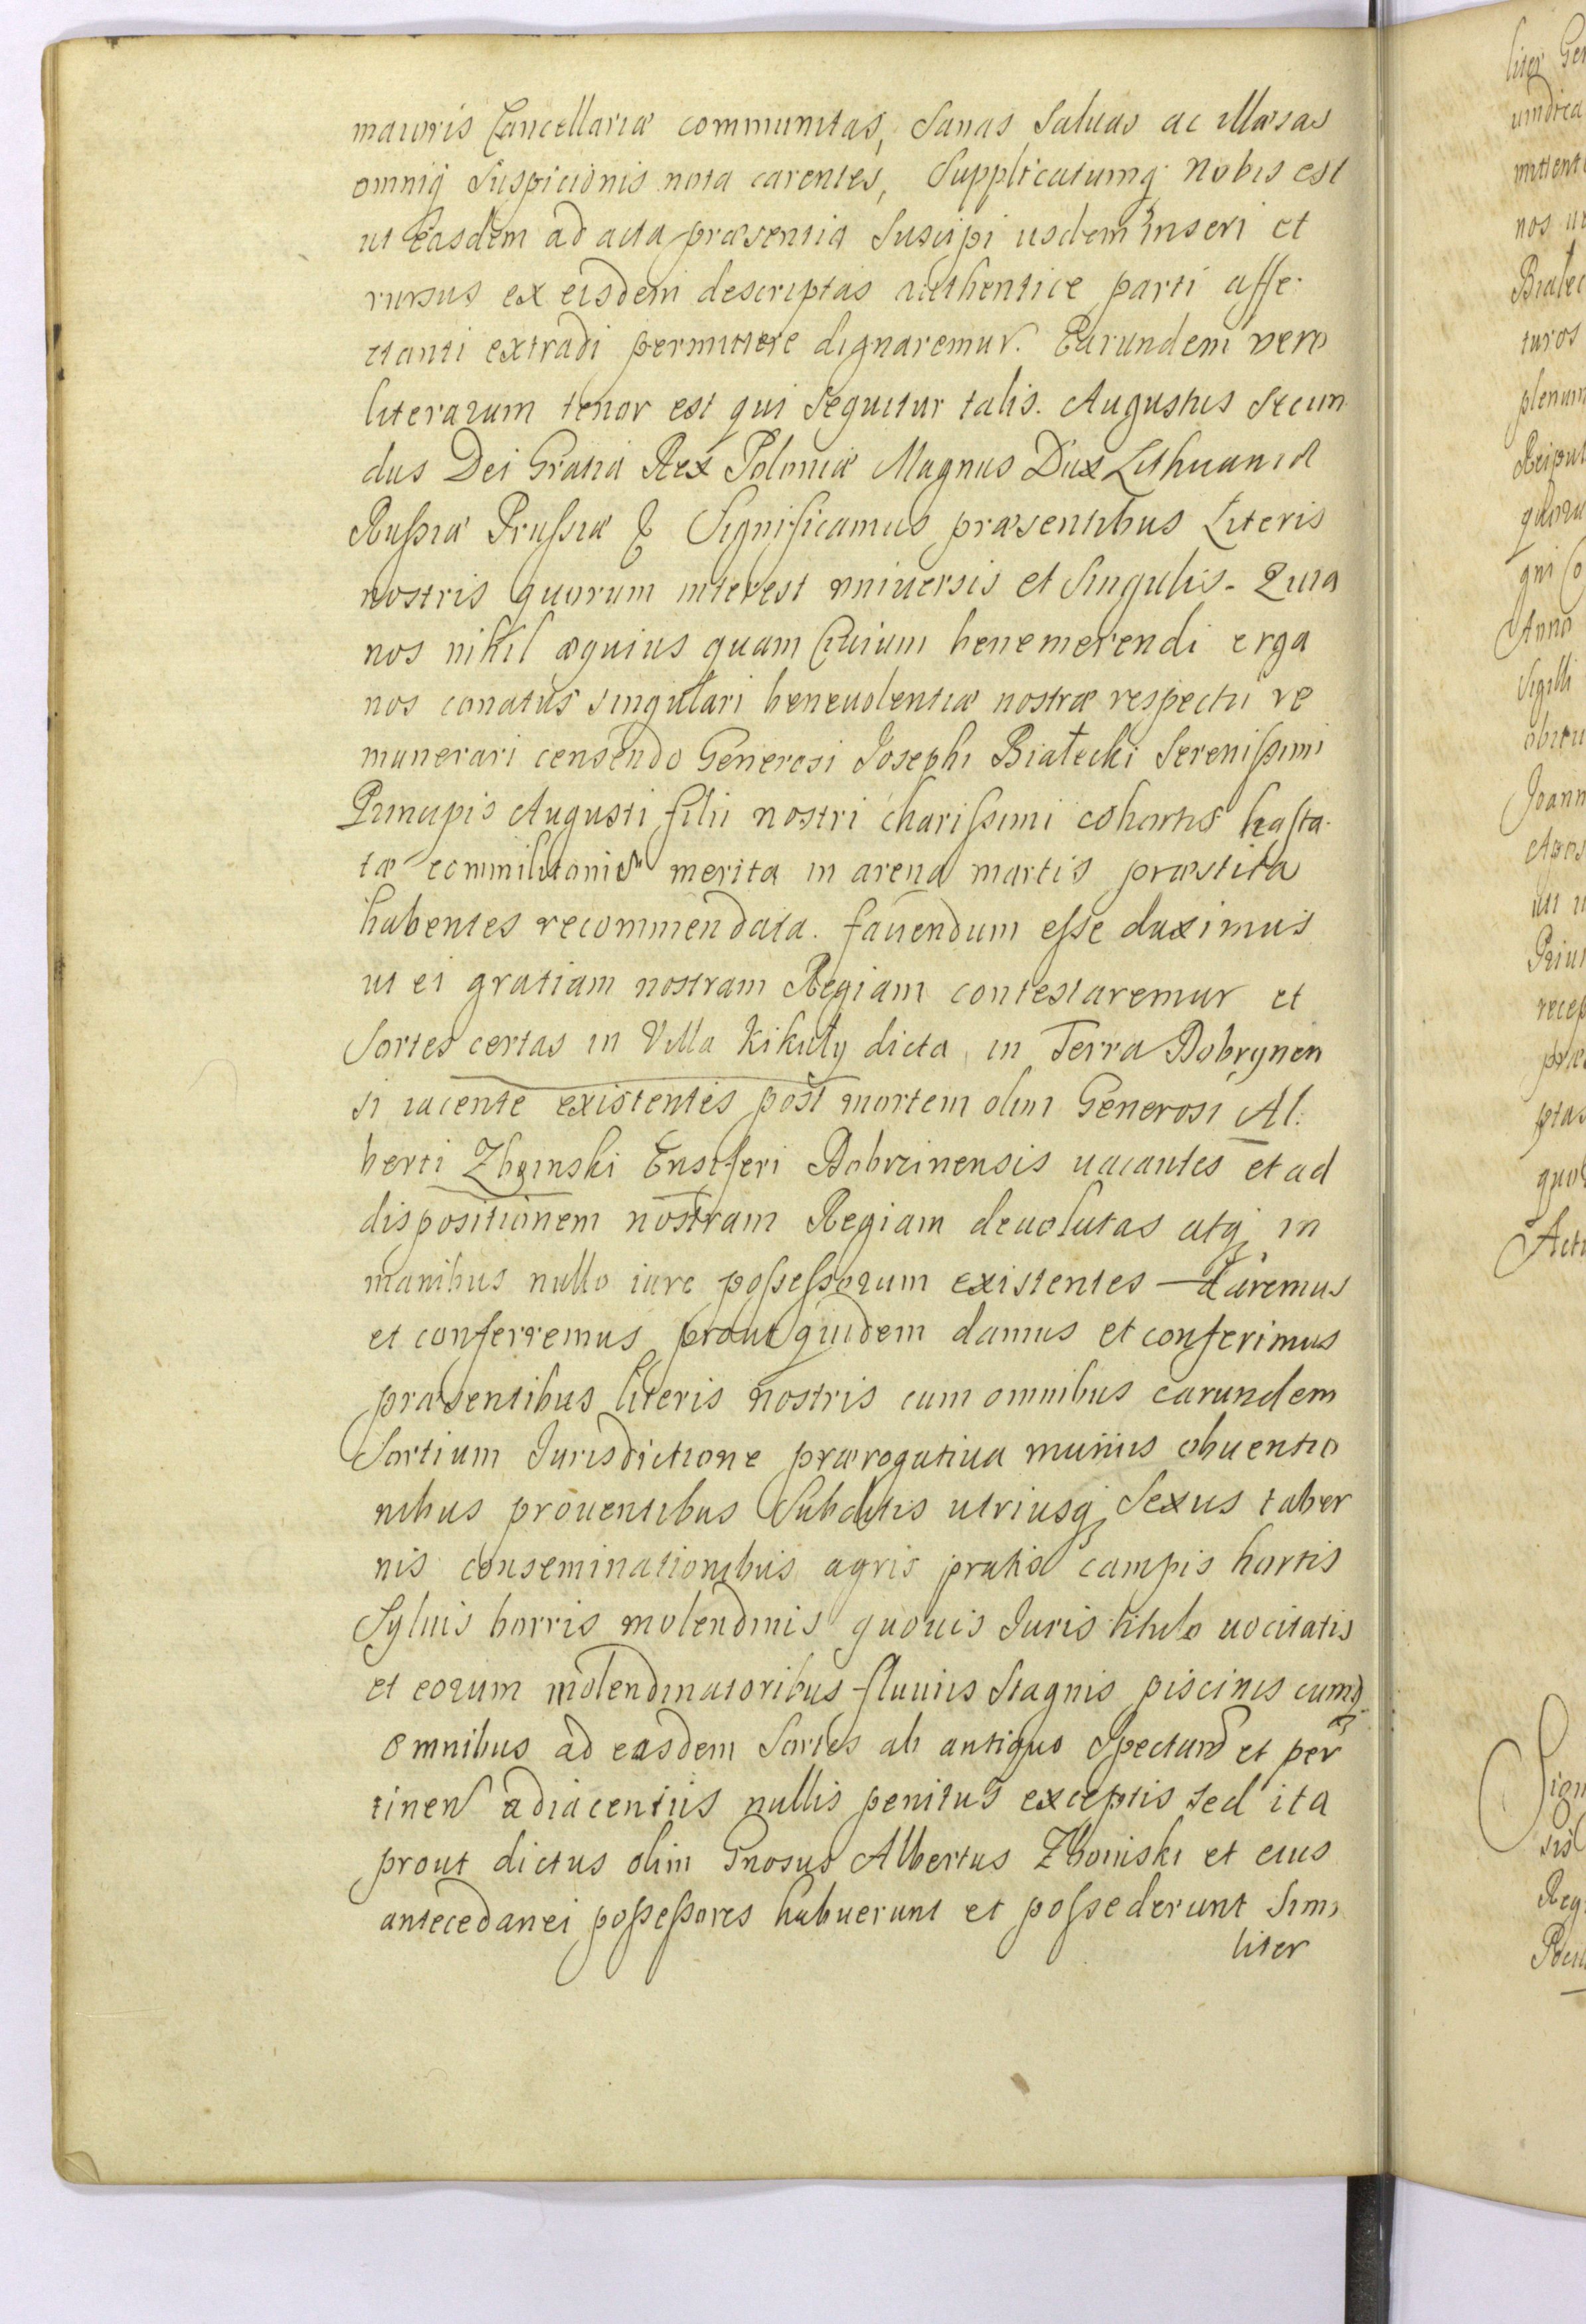 maioris Cancellariæ communitas, Sanas Saluas ac illæsas
omniq; Suspicionis nota carentes, Supplicatumq; nobis est
ut Easdem ad acta præsentia Suscipi iisdem inseri et
rursus ex eisdem descriptas authentice parti affe-
ctanti extradi permittere dignaremur. Earundem vero
literarum tenor est qui Sequitur talis. Augustus Secun
dus Dei Gratia Rex Poloniæ Magnus Dux Lithuaniæ
Rußiæ Prußiæ & Significamus præsentibus Literis
nostris quorum interest uniuersis et Singulis - Quia
nos nihil æquius quam Ciuium benemerendi erga
nos conatus singulari beneuolentiæ nostræ respectu re
munerari censendo Generosi Josephi Białecki Serenißimi
Principis Augusti filii nostri charißimi cohortis hasta-
tæ commilitonis merita in arena martis præstita
habentes recommendata. fauendum eße duximus
ut ei gratiam nostram Regiam contestaremur et
Sortes certas in Villa Kikuły dicta, in Terra Dobrynen
si iacente existentes post mortem olim Generosi Al:
berti Zboinski Ensiferi Dobrzinensis uacantes et ad
dispositionem nostram Regiam deuolutas atq; in
manibus nullo iure poßeßorum existentes — daremus
et conferremus prout quidem damus et conferimus
præsentibus literis nostris cum omnibus earundem
Sortium Jurisdictione prærogatiua muniis obuentio
nibus prouentibus Subditis utriusq; Sexus taber
nis conseminationibus agris pratis campis hortis
Syluis borris molendinis quouis Juris titulo uocitatis
et eorum molendinatoribus fluuiis Stagnis piscinis cumq;
omnibus ad easdem Sortes ab antiquo Spectand et per
tinen adiacentiis nullis penitus exceptis sed ita
prout dictus olim Gnosus Albertus Zboinski et eius
antecedanei poßeßores habuerunt et poßederunt Simi
liter